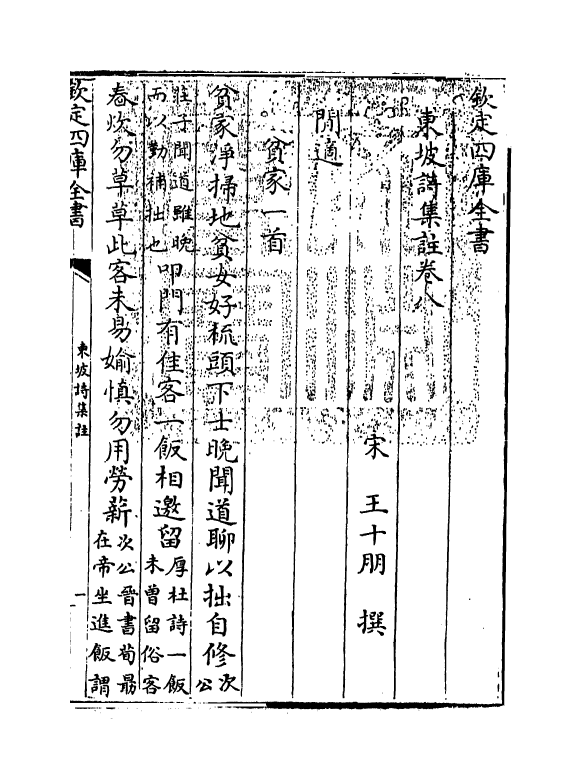 欽定四庫全書
東坡詩集註卷八
宋 王十朋 撰
閒適
貧家一首
貧家淨掃地貧女好梳頭下士晚聞道聊以拙自修次公
莊子聞道雖晚而以勤補拙也叩門有佳客一飯相邀留厚杜詩一飯未曾留俗客
春炊勿草草此客未易媮慎勿用勞薪次公晉書荀勗在帝坐進飯謂
欽定四庫全書
東坡詩集註
一